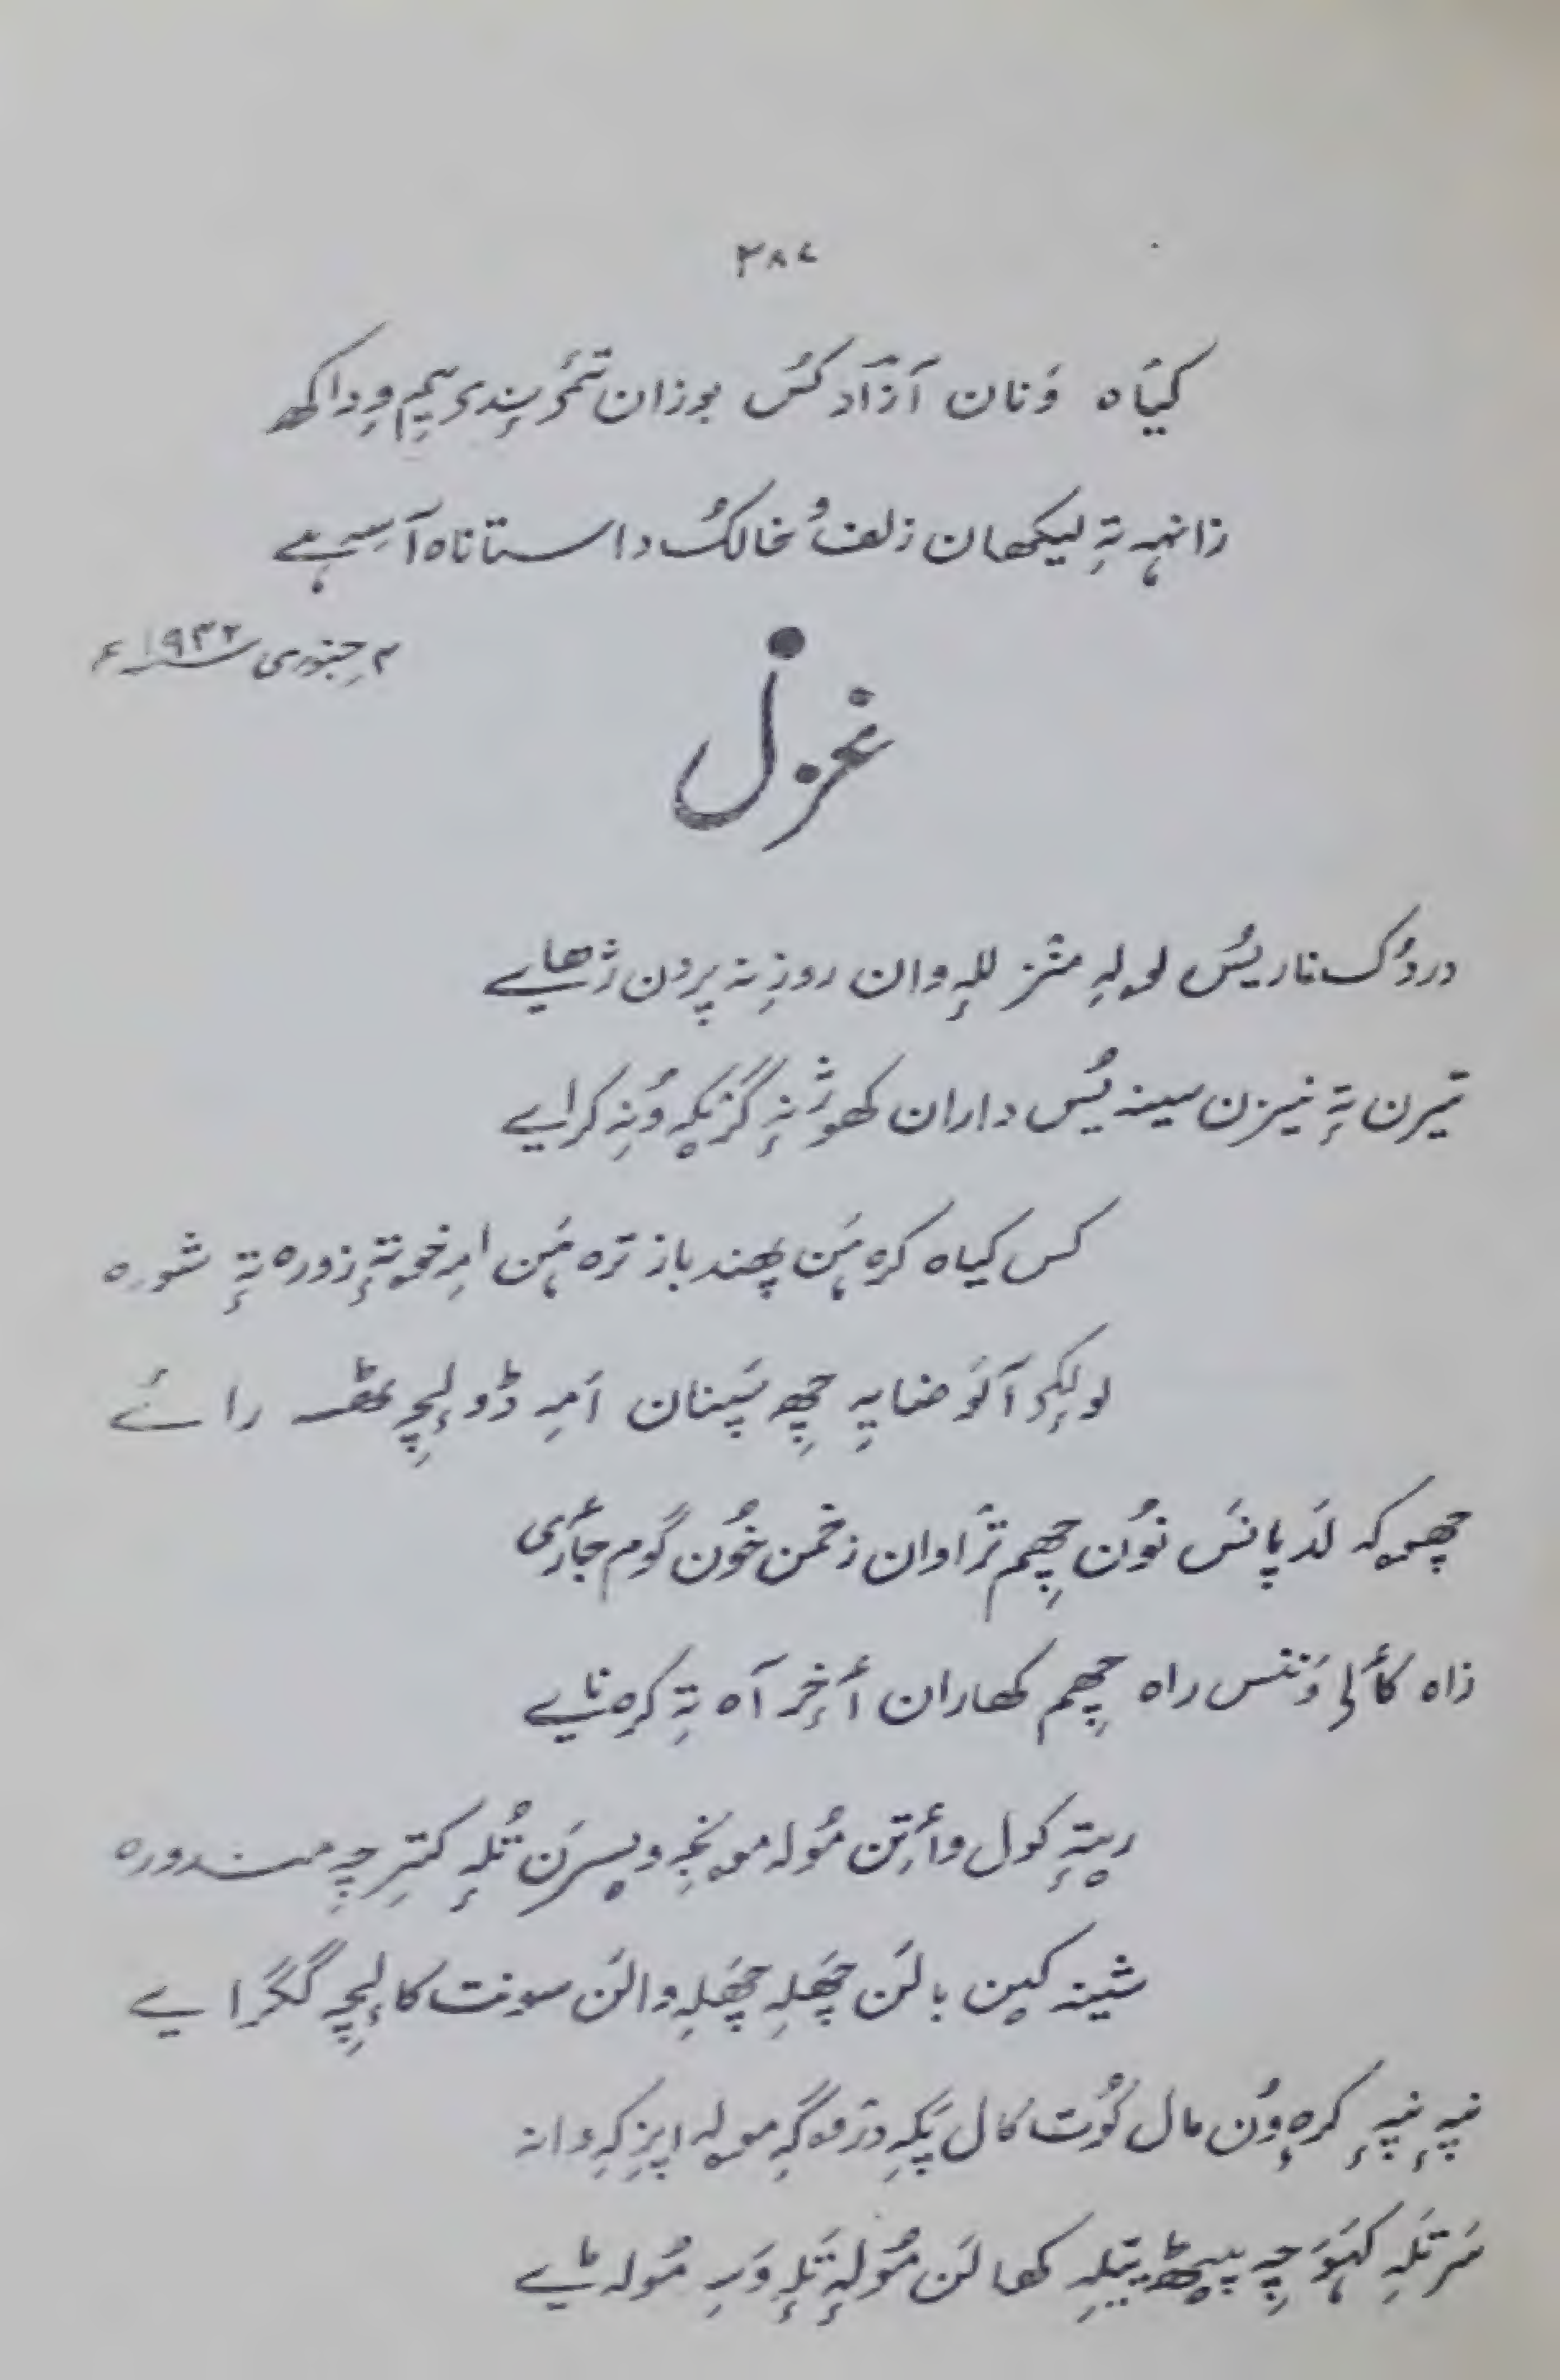 ۳۸۷
کیَاہ وَنان آزاد کسُ بوزان تمٔرِندی یِم وِداکھ
زانہہ تہِ لیکھان زلفُ خالکُ داستاناہ آسہِ ہے
۲ جنوری ۱۹۳۲ء
غزل
دردُک ناریسُ لولہِ منٛز للہٕ وان روزِ نہ پردن ژھایے
تیرن تہٕ نیزن سینہ یُس داران کھوژنہٕ گزٕکہِ وُنہِ کرایے
کس کیاہ کرٕہ ہَن پھند باز ترٕہ ہَن امہِ خوتہٕ زورہ تہٕ شورہ
لولکٕۍ آلَو ضایہِ چھِ سَپنان اَمہِ ڈولٕچہِ راے
چھوکہ لَد پانسَ نوُن چھِم ترٛاوان زخمن خوُن گوم جأری
زاہ کألۍ وَننس راہ چھِم کھاران أخٕر آہ تہِ کرٕہ نایے
ریتہٕ کول وأتِن موُلہ مونجہِ ویسرَن تُلہٕ کترِچہِ مندورہ
شینہ کین بالَن چھَلہِ چھَلہِ والَن سونت کالٕچہِ گگَرایے
نپہٕ نپہٕ کرٕہ وُن مال کوُت کال پکہِ درٛوگہِ مولہ اپزِکہِ وانہ
سَرتلہِ کہوَچہِ پیٹھ یتلہِ کھالَن موُلہٕ تَلہٕ وَسہِ موُلہ ٹے